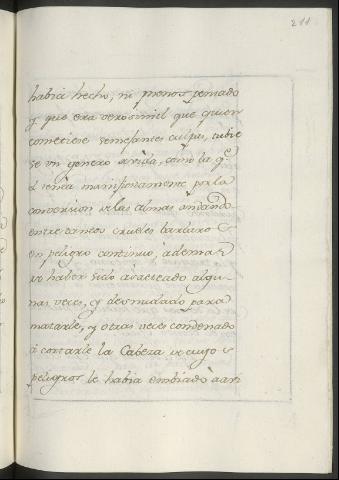 211
había hecho, ni menos pensado
y que era verosimil que quien
cometiese semejantes culpas, tubie
se un genero de vida, como la q.e
el tenia manifiestamente por la
conversion de las almas andando
entre tantos crueles barbaros
en peligro continuo, ademas
de haber sido azaeteado algu-
nas veces, y desnudado para
matarle, y otras veces condenado
á cortarle la Cabeza de cuyos
peligros le habia embiado à san